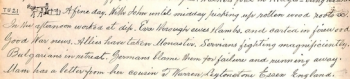 A fine day. With John until midday picking up rotten wood roots &c.
In the afternoon worked at dip. Eva Waugh lambs, and darted in forward
Good War news. Allies have taken Monaster. Servians fighting magnificently,
Bulgarians in retreat. Germans blame them for failure and running away.
Mam has a letter from her cousin J Warren, Leytonstone Essex England.